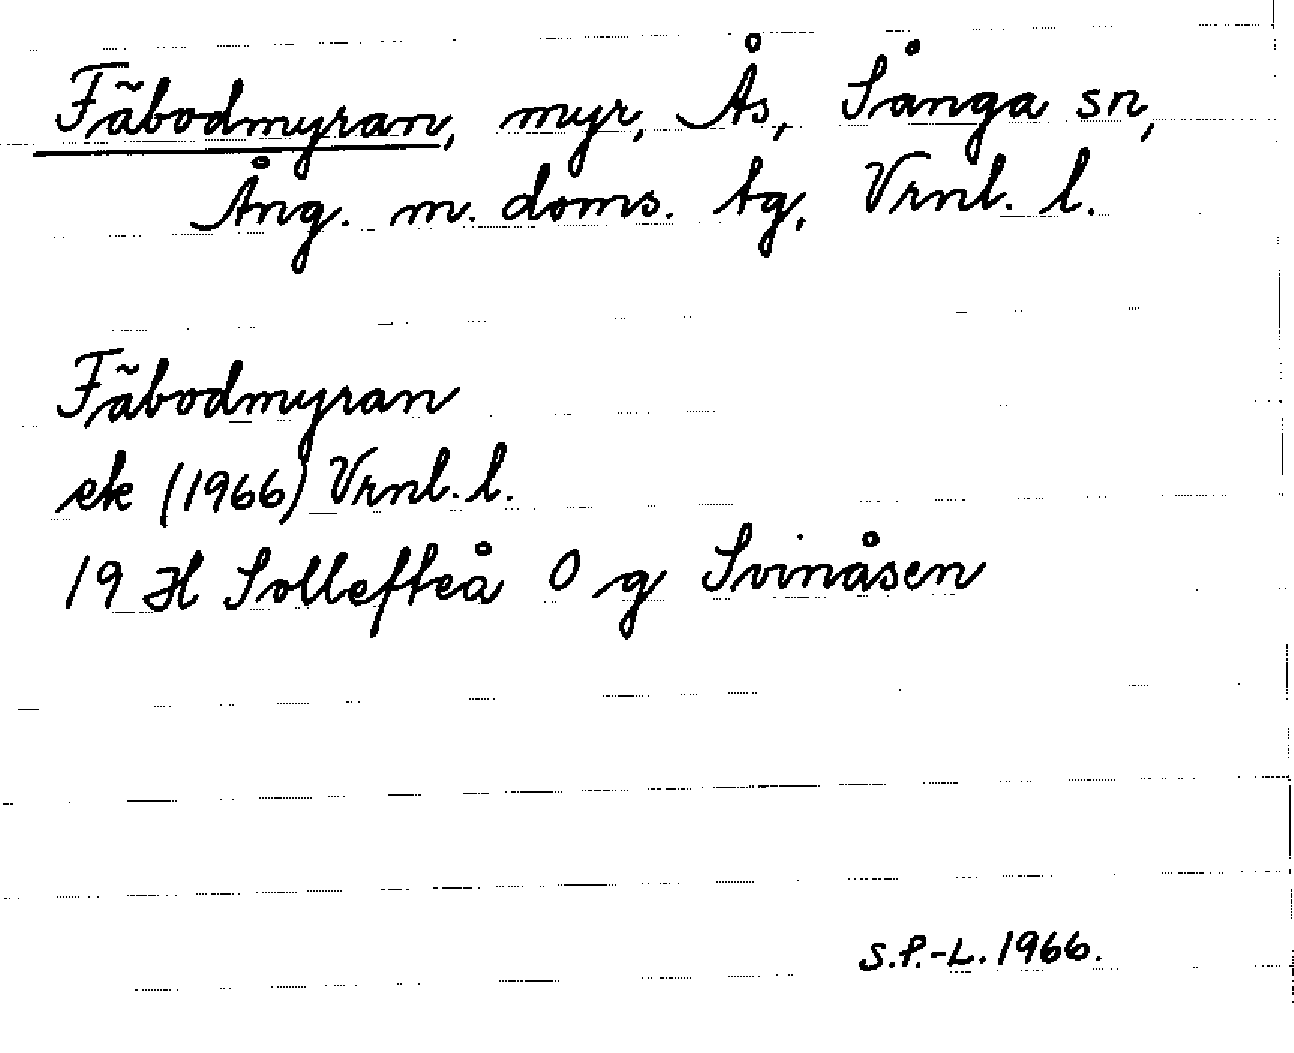 Fäbodmyran, myr, Ås, Sånga sn,
Ång. m. doms. tg, Vrnl. l.
Fäbodmyran
ek (1966) Vrnl. l.
19 H Sollefteå O g Svinåsen
S.P.-L. 1966.